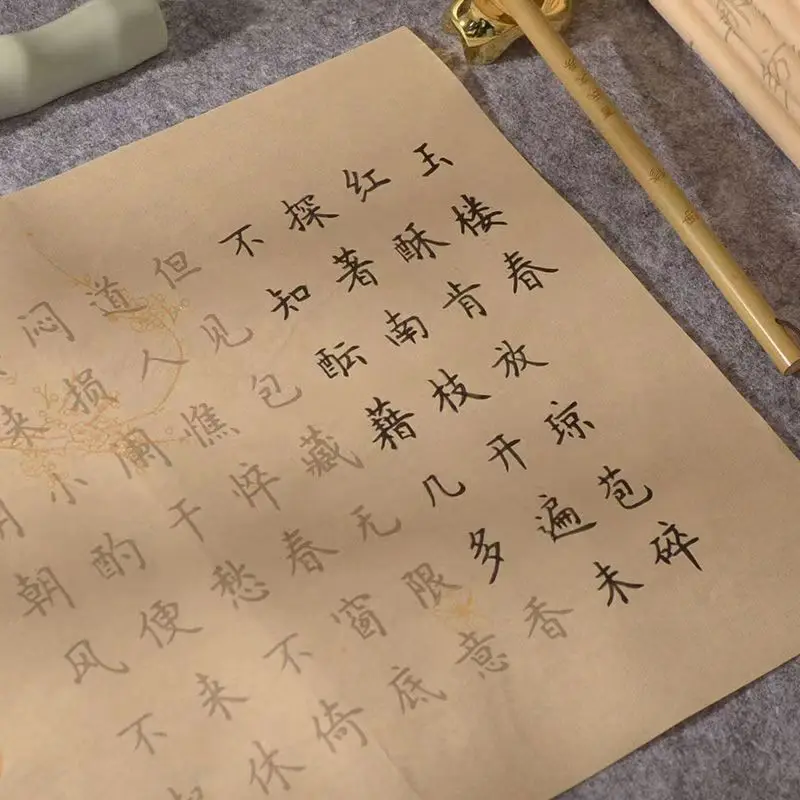 玉楼春
红酥肯放琼苞碎
探著南枝开遍未
不知酝藉几多香
但见包藏无限意
道人憔悴春窗底
闷损阑干愁不倚
来小酌便来休
朝风不